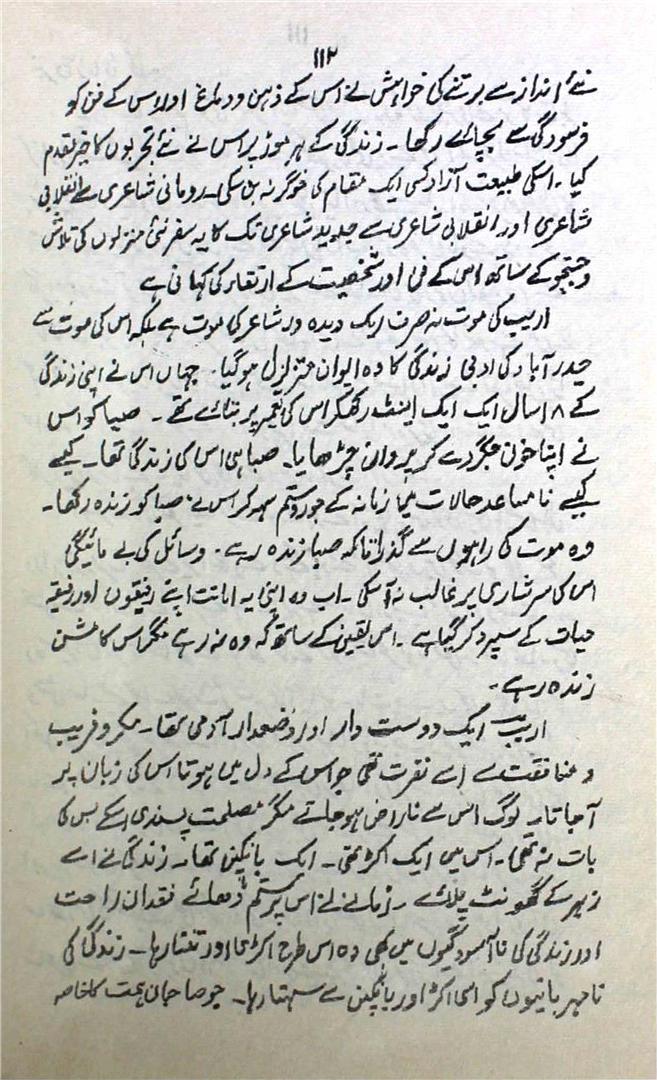 ۱۱۲
نئے انداز سے برتنے کی خواہش نے اس کے ذہن و دماغ اور اس کے فن کو
فرسودگی سے بچائے رکھا ۔ زندگی کے ہر موڑ پر اس نے نئے تجربوں کا خیر مقدم
کیا ۔ اسکی طبیعت آزاد کسی ایک مقام کی خوگر نہ بن سکی ۔ رومانی شاعری سے انقلابی
شاعری اور انقلابی شاعری سے جدید شاعری تک کا یہ سفر نئی منزلوں کی تلاش
و جستجو کے ساتھ اس کے فن اور شخصیت کے ارتقاء کی کہانی ہے
اریب کی موت نہ صرف ایک دیدہ ور شاعر کی موت ہے بلکہ اس کی موت سے
حیدرآباد کی ادبی زندگی کا وہ ایوان متزلزل ہو گیا ۔ جہاں اس نے اپنی زندگی
کے ۱۸ سال ایک ایک اینٹ رکھکر اس کی تعمیر پر بتائے تھے ۔ صبا کو اس
نے اپنا خون جگر دے کر پروان چڑھایا ۔ صبا ہی اس کی زندگی تھا ۔ کیسے
کیسے نامساعد حالات میں زمانہ کے جور و ستم سہہ کر اس نے صبا کو زندہ رکھا ۔
وہ موت کی راہوں سے گذرا تاکہ صبا زندہ رہے ۔ وسائل کی بے مائیگی
اس کی سرشاری پر غالب نہ آسکی ۔ اب وہ اپنی یہ امانت اپنے رفیقوں اور رفیقہ
حیات کے سپرد کر گیا ہے ۔ اس یقین کے ساتھ کہ وہ نہ رہے مگر اس کا مشن
زندہ رہے ۔
اریب ایک دوست دار اور وضعدار آدمی تھا ۔ مکر و فریب
و منافقت سے اسے نفرت تھی جو اس کے دل میں ہوتا اس کی زبان پر
آجاتا ۔ لوگ اس سے ناراض ہو جاتے مگر مصلحت پسندی اسکے بس کی
بات نہ تھی ۔ اس میں ایک اکڑ تھی ۔ ایک بانکپن تھا ۔ زندگی نے اسے
زہر کے گھونٹ پلائے ۔ زمانے نے اس پر ستم ڈھائے فقدان راحت
اور زندگی کی ناآسودگیوں میں بھی وہ اس طرح اکڑتا اور تنتا رہا ۔ زندگی کی
نامہربانیوں کو اسی اکڑ اور بانکپن سے سہتا رہا ۔ جو صاحبان ہمت کا خاصہ